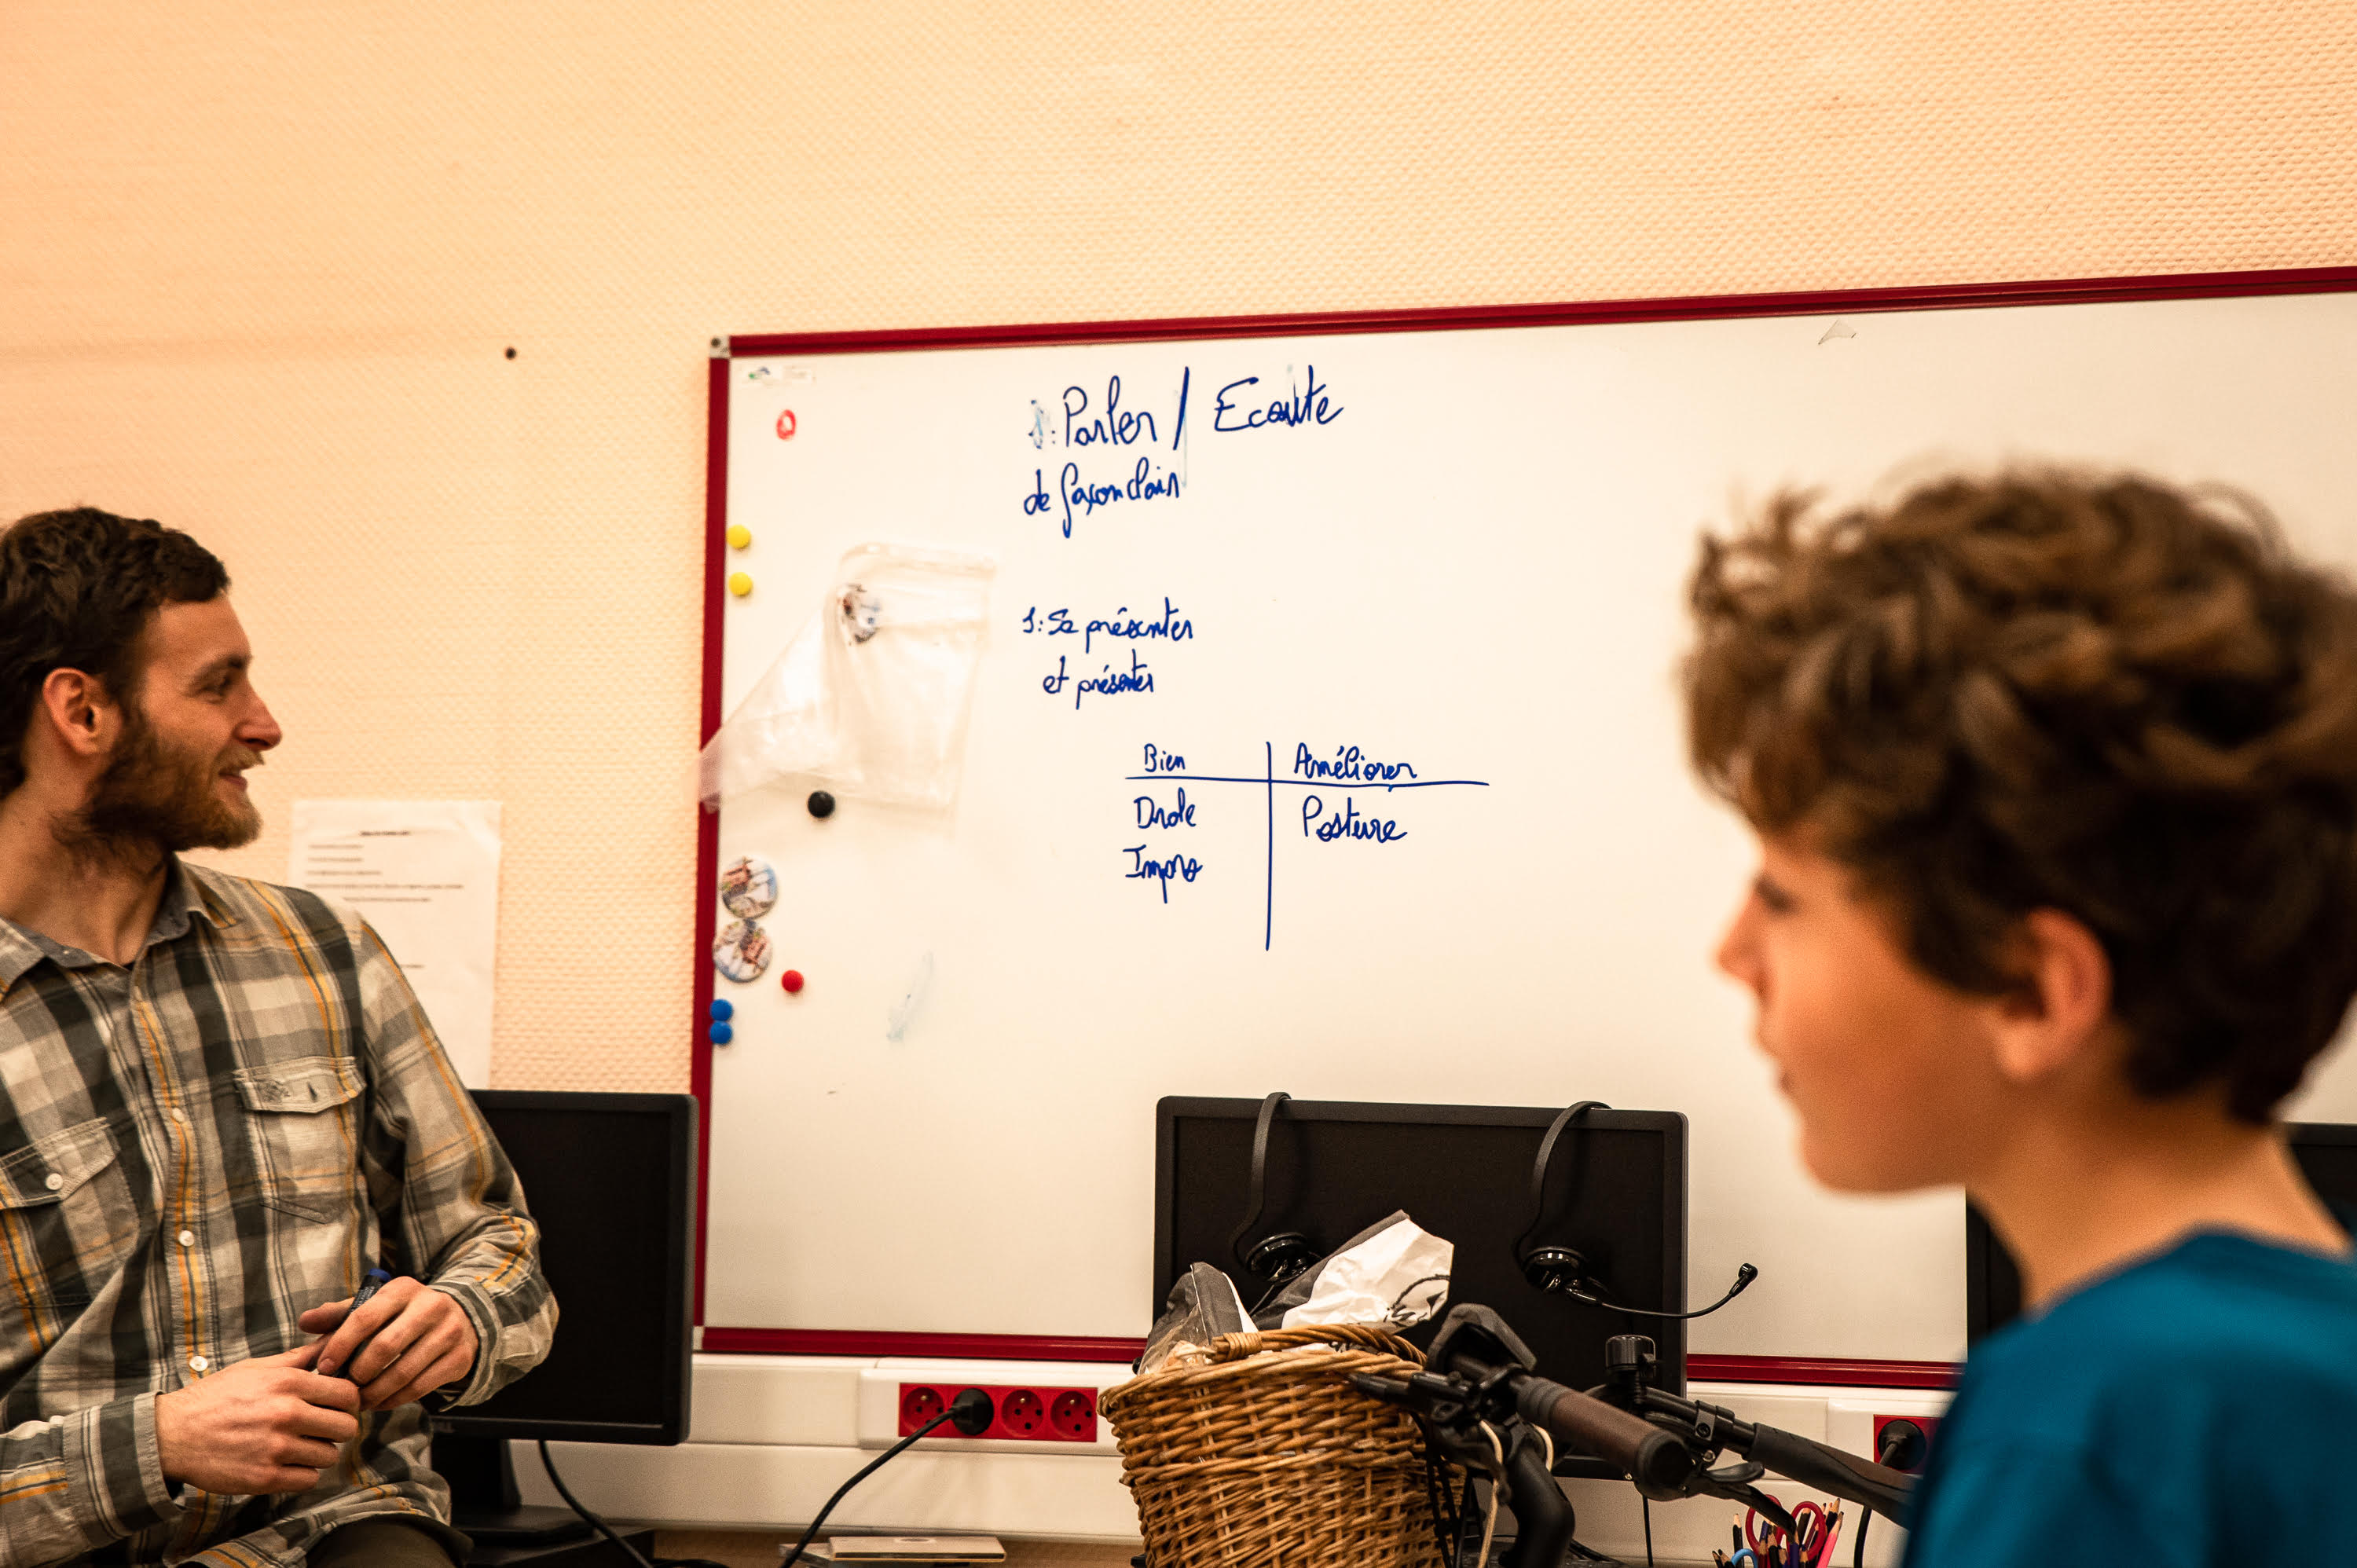 1: Parler / Ecoute
de façon clair
1: Se présenter
et présenter
Bien | Améliorer
Drole | Posture
Impro